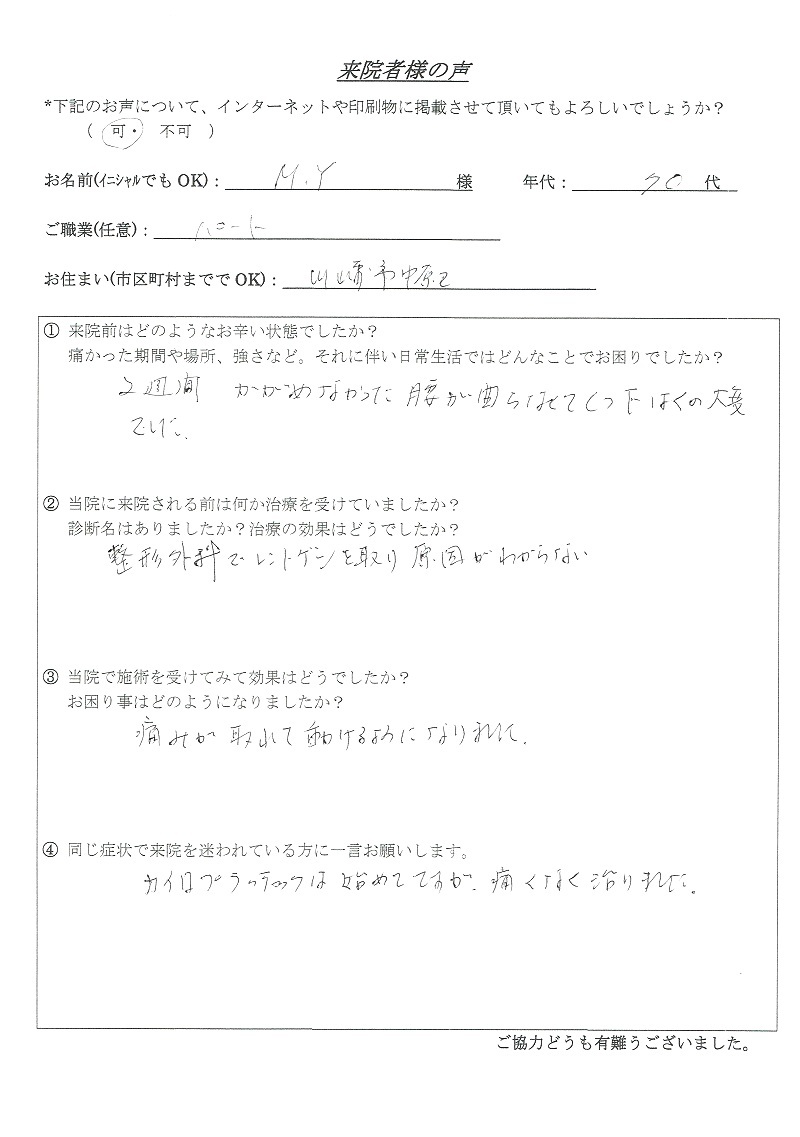 来院者様の声
*下記のお声について、インターネットや印刷物に掲載させて頂いてもよろしいでしょうか？
（ 可・ 不可 ）
お名前(ｲﾆｼｬﾙでもOK)： M.Y 様 年代： 70 代
ご職業(任意)： パート
お住まい(市区町村まででOK)： 川崎市中原区
① 来院前はどのようなお辛い状態でしたか？
痛かった期間や場所、強さなど。それに伴い日常生活ではどんなことでお困りでしたか？
2週間 かがめなかった 腰が曲らなせてくつ下はくの大変
でした。
② 当院に来院される前は何か治療を受けていましたか？
診断名はありましたか？治療の効果はどうでしたか？
整形外科でレントゲンを取り 原因がわからない
③ 当院で施術を受けてみて効果はどうでしたか？
お困り事はどのようになりましたか？
痛みが取れて動けるようになりました.
④ 同じ症状で来院を迷われている方に一言お願いします。
カイロプラッチックは始めてですが、痛くなく治りました。
ご協力どうも有難うございました。